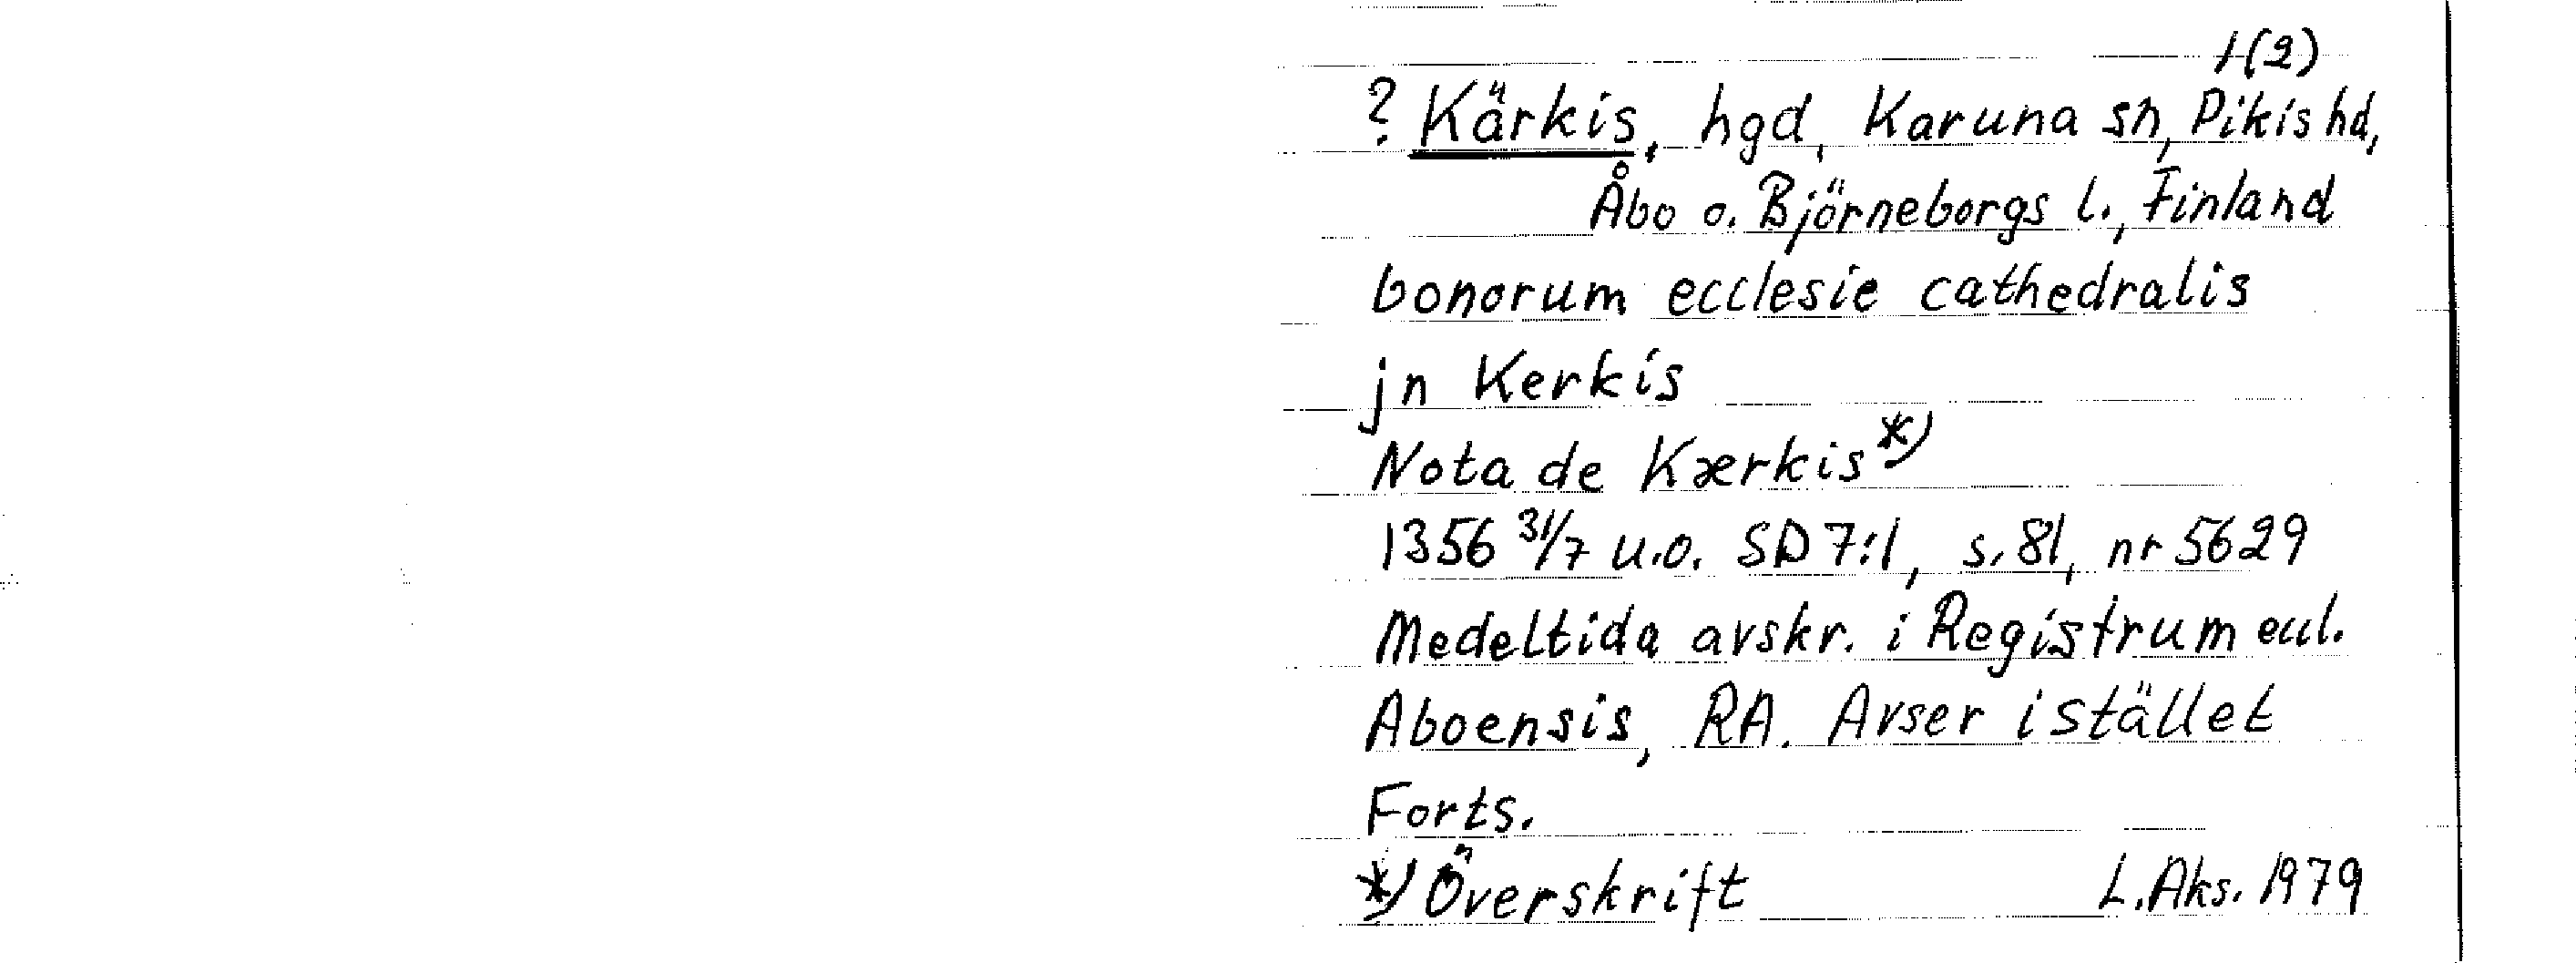 1(2)
? Kärkis, hgd, Karuna sn, Pikis hd,
Åbo o. Björneborgs l., Finland
bonorum ecclesie cathedralis
jn Kerkis
Nota de Kærkis *)
1356 31/7 u.o. SD 7:1, s. 81, nr 5629
Medeltida avskr. i Registrum eccl.
Aboensis, RA. Avser istället
Forts.
*) Överskrift L. Aks. 1979